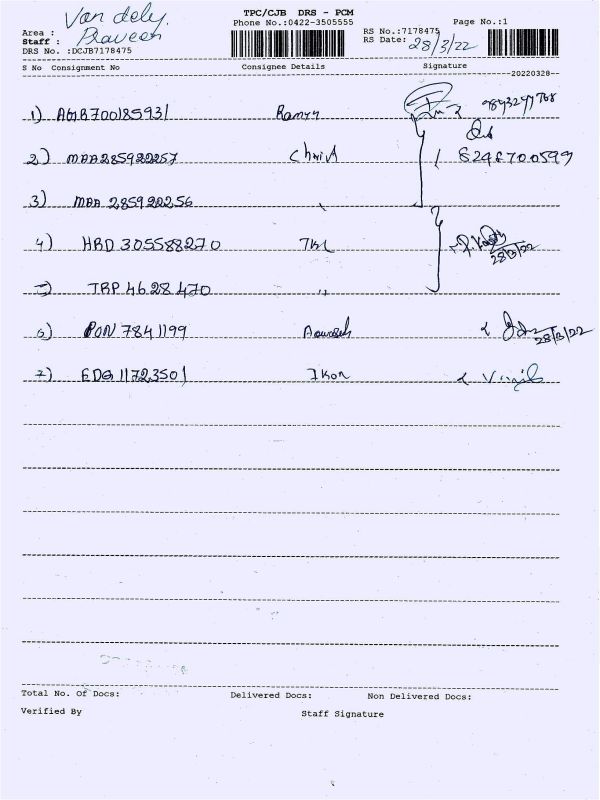 TPC/CJB DRS - PCM
Phone No.:0422-3505555
Page No.:1
Area : Van dely.
Staff : Praveen
DRS No. :DCJB7178475
RS No.:7178475
RS Date: 28/3/22
S No Consignment No Consignee Details Signature
20220328
1)
2) MAA285922257 Christ
6246700599
3) MAA 285922256 "
4) HRD 305588270
28/3/22
5) TRP 4628470 "
6) PON 7841199
28/3/22
7) EDG11723501 Ikon
Total No. Of Docs: Delivered Docs: Non Delivered Docs:
Verified By Staff Signature